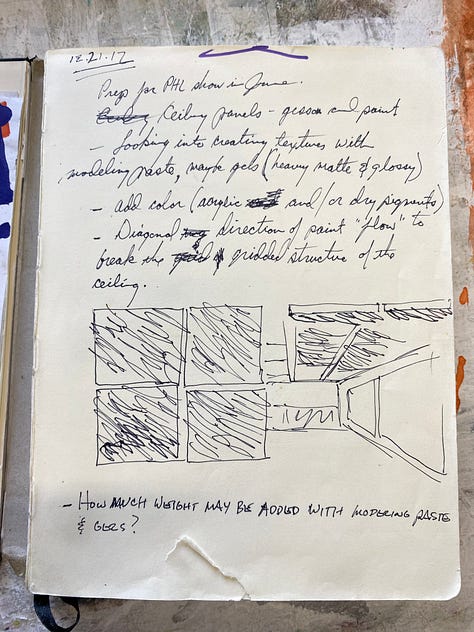 12.21.17
Prep for PHL show in June.
Ceiling panels - gesso and paint
- Looking into creating textures with
modeling paste, maybe gels (heavy matte & glossy)
- add color (acrylic and/or dry pigments)
- Diagonal direction of paint "flow" to
break the gridded structure of the
ceiling.
- HOW MUCH WEIGHT MAY BE ADDED WITH MODERING PASTE
& GELS?